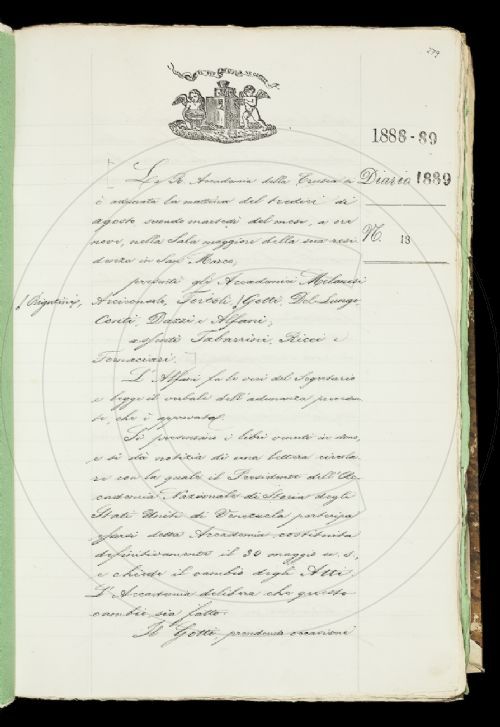 279
1888-89
Diario 1889
N. 13
La R. Accademia della Crusca si
è adunata la mattina del tredici di
agosto secondo martedì del mese, a ore
nove, nella Sala maggiore della sua resi
denza in San Marco,
presenti gli Accademici Milanesi
Arciconsolo, Tortoli, Gotti, Del Lungo,
Conti, Dazzi e Alfani;
assenti Tabarrini, Ricci e
L'Alfani fa le veci del Segretario
e legge il verbale dell'adunanza preceden
te, che è approvato.
Si presentano i libri venuti in dono,
e si dà notizia di una lettera circola
re con la quale il Presidente dell'Ac
cademia Nazionale di Storia degli
Stati Uniti di Venezuela partecipa
essersi detta Accademia costituita
definitivamente il 30 maggio u. s.,
e chiede il cambio degli Atti.
L'Accademia delibera che questo
cambio sia fatto.
Il Gotti, prendendo occasione